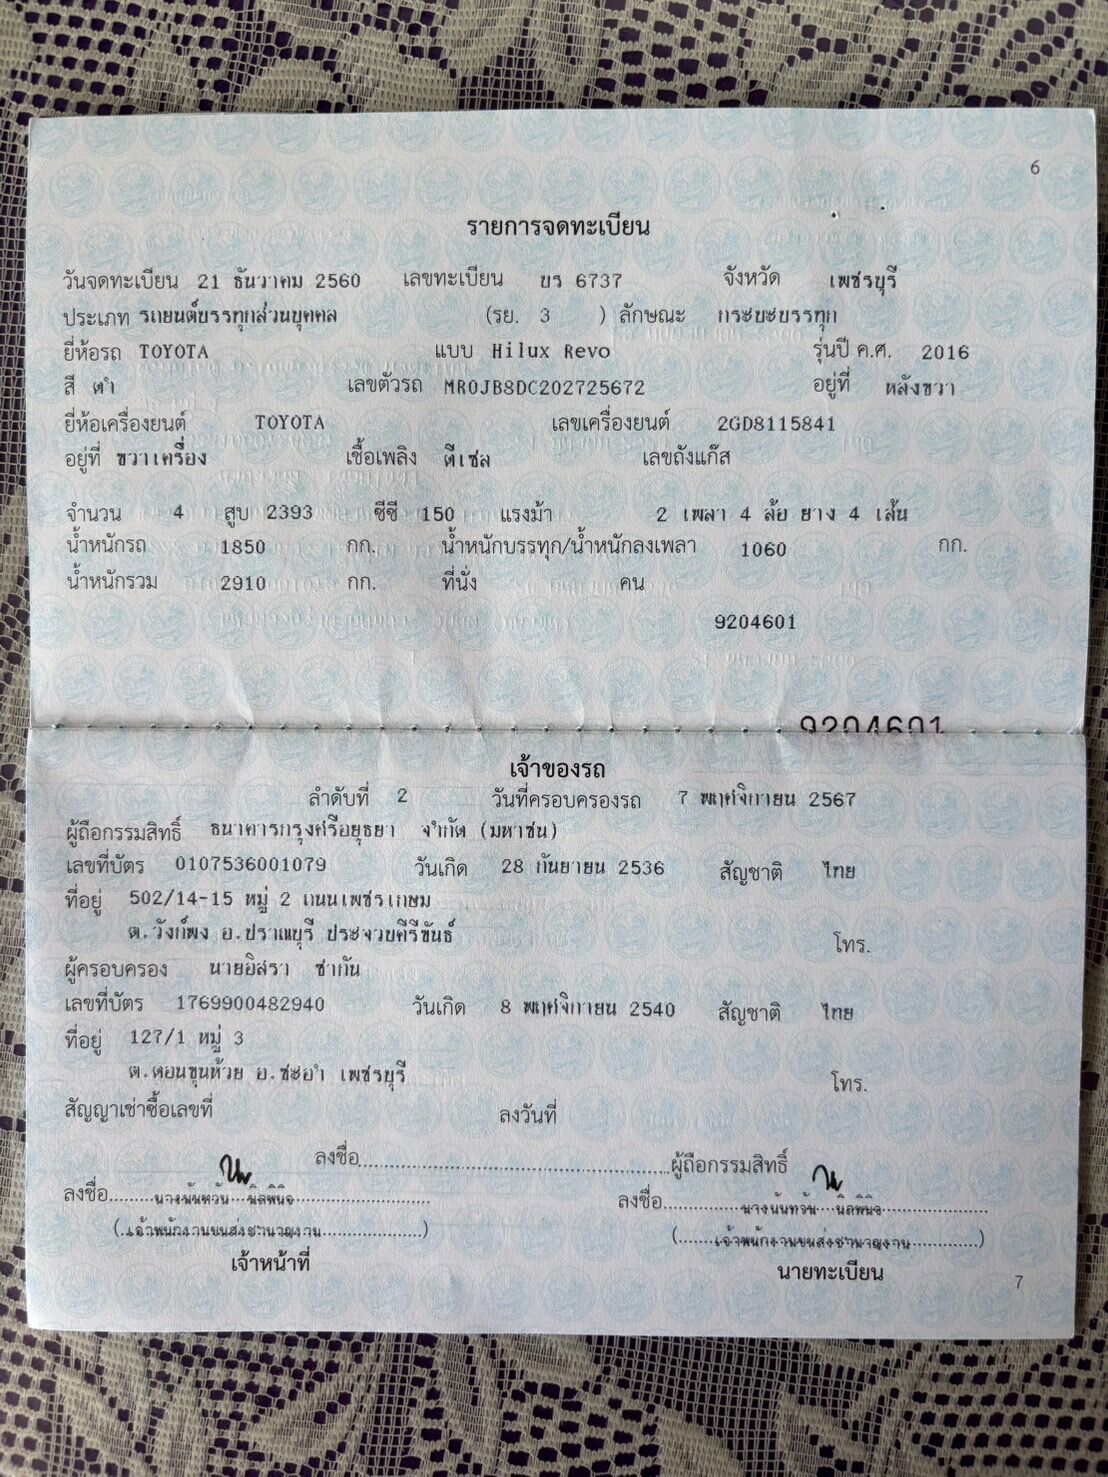 6
รายการจดทะเบียน
วันจดทะเบียน 21 ธันวาคม 2560 เลขทะเบียน บร 6737 จังหวัด เพชรบุรี
ประเภท รถยนต์บรรทุกส่วนบุคคล (รย. 3 ) ลักษณะ กระบะบรรทุก
ยี่ห้อรถ TOYOTA แบบ Hilux Revo รุ่นปี ค.ศ. 2016
สี ดำ เลขตัวรถ MR0JB8DC202725672 อยู่ที่ หลังขวา
ยี่ห้อเครื่องยนต์ TOYOTA เลขเครื่องยนต์ 2GD8115841
อยู่ที่ ขวาเครื่อง เชื้อเพลิง ดีเซล เลขถังแก๊ส
จำนวน 4 สูบ 2393 ซีซี 150 แรงม้า 2 เพลา 4 ล้อ ยาง 4 เส้น
น้ำหนักรถ 1850 กก. น้ำหนักบรรทุก/น้ำหนักลงเพลา 1060 กก.
น้ำหนักรวม 2910 กก. ที่นั่ง คน
9204601
9204601
เจ้าของรถ
ลำดับที่ 2 วันที่ครอบครองรถ 7 พฤศจิกายน 2567
ผู้ถือกรรมสิทธิ์ ธนาคารกรุงศรีอยุธยา จำกัด (มหาชน)
เลขที่บัตร 0107536001079 วันเกิด 28 กันยายน 2536 สัญชาติ ไทย
ที่อยู่ 502/14-15 หมู่ 2 ถนนเพชรเกษม
ต.วังก์พง อ.ปราณบุรี ประจวบคีรีขันธ์ โทร.
ผู้ครอบครอง นายอิสรา ชำกัน
เลขที่บัตร 1769900482940 วันเกิด 8 พฤศจิกายน 2540 สัญชาติ ไทย
ที่อยู่ 127/1 หมู่ 3
ต.ดอนขุนห้วย อ.ชะอำ เพชรบุรี โทร.
สัญญาเช่าซื้อเลขที่ ลงวันที่
ลงชื่อ ผู้ถือกรรมสิทธิ์
ลงชื่อ นางนันทวัน นิลพินิจ ลงชื่อ นางนันทวัน นิลพินิจ
(เจ้าพนักงานขนส่งชำนาญงาน) (เจ้าพนักงานขนส่งชำนาญงาน)
เจ้าหน้าที่ นายทะเบียน
7